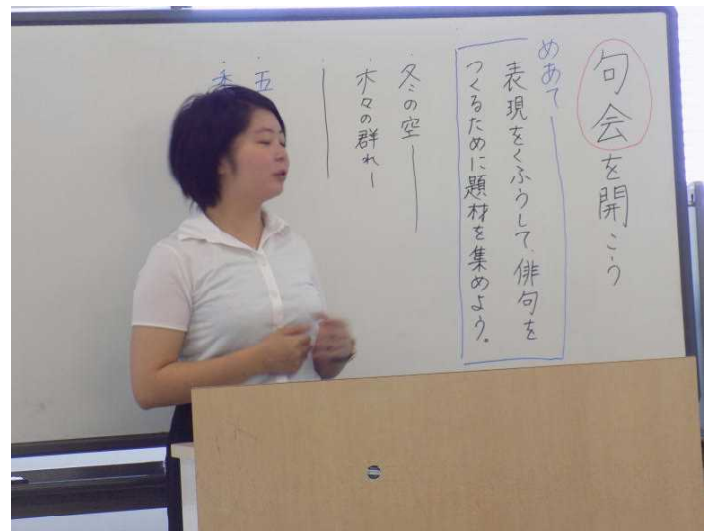 句会を開こう
めあて
表現をくふうして、俳句を
つくるために題材を集めよう。
冬の空
木々の群れ
五
季